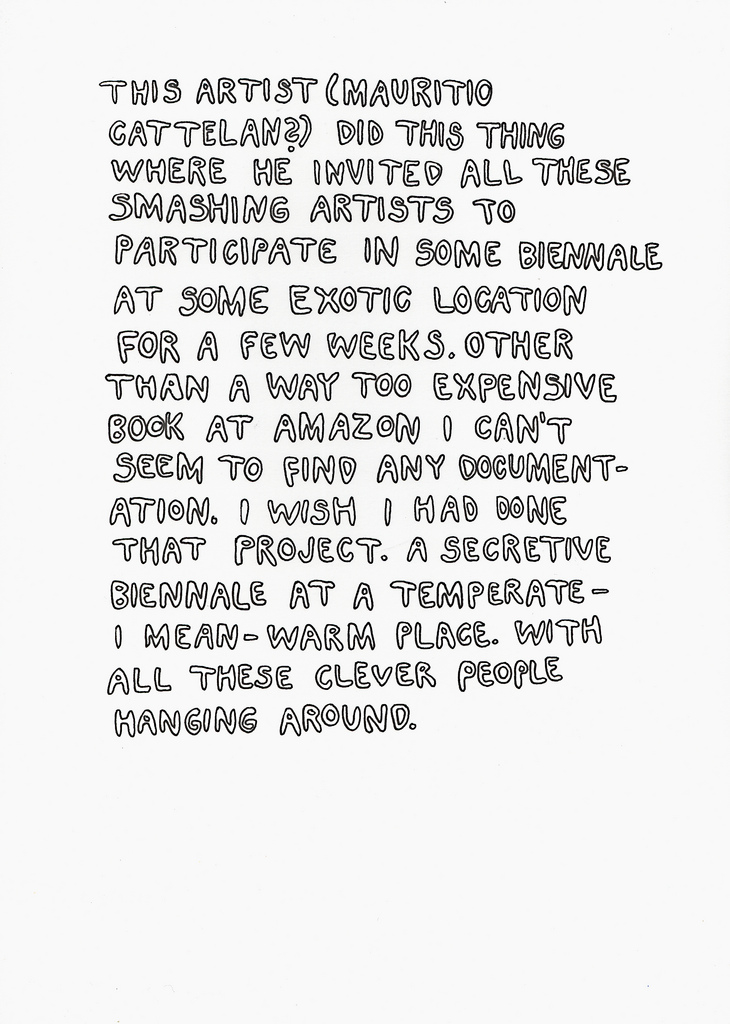 THIS ARTIST (MAURITIO
CATTELAN?) DID THIS THING
WHERE HE INVITED ALL THESE
SMASHING ARTISTS TO
PARTICIPATE IN SOME BIENNALE
AT SOME EXOTIC LOCATION
FOR A FEW WEEKS. OTHER
THAN A WAY TOO EXPENSIVE
BOOK AT AMAZON I CAN'T
SEEM TO FIND ANY DOCUMENT-
ATION. I WISH I HAD DONE
THAT PROJECT. A SECRETIVE
BIENNALE AT A TEMPERATE-
I MEAN-WARM PLACE. WITH
ALL THESE CLEVER PEOPLE
HANGING AROUND.